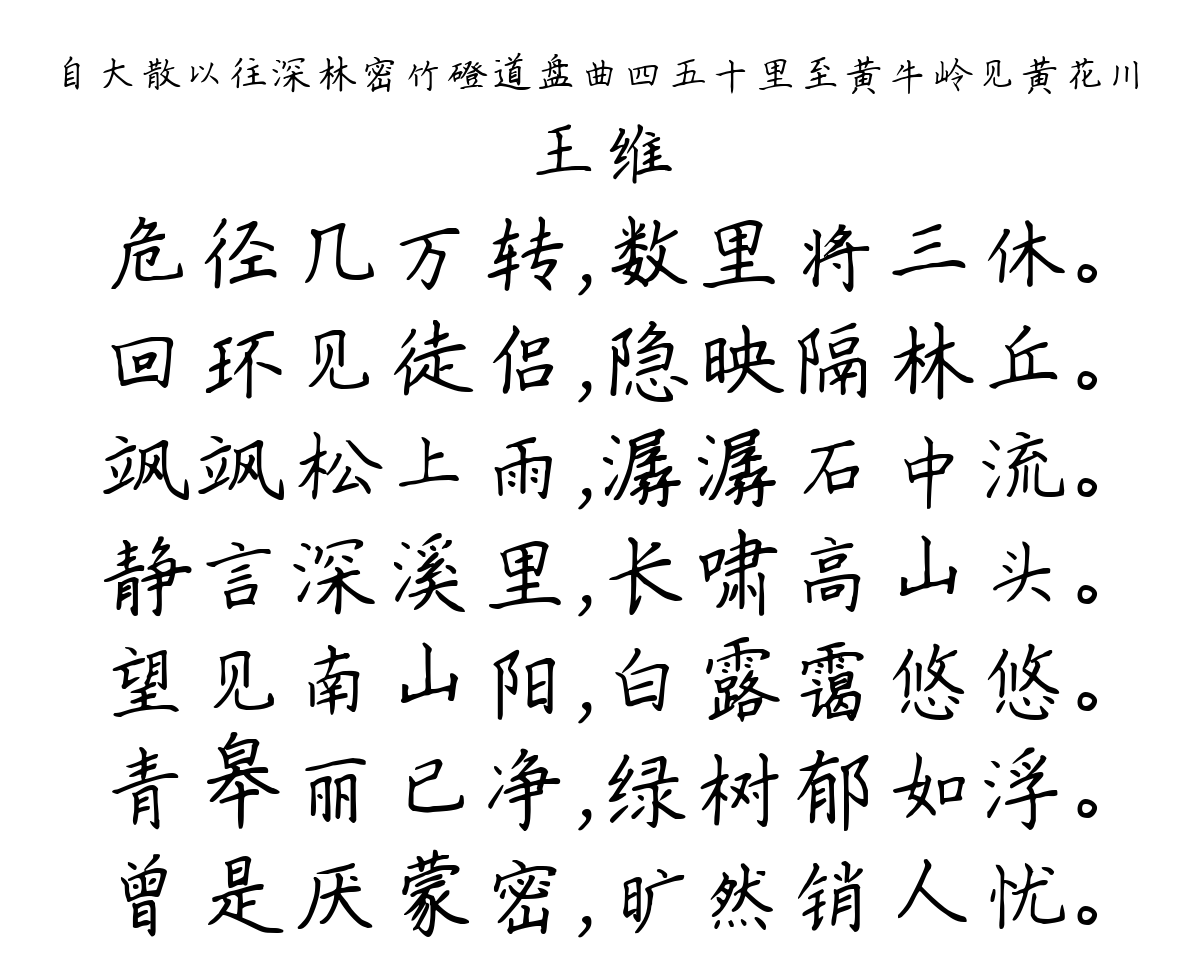 自大散以往深林密竹磴道盘曲四五十里至黄牛岭见黄花川
王维
危径几万转,数里将三休。
回环见徒侣,隐映隔林丘。
飒飒松上雨,潺潺石中流。
静言深溪里,长啸高山头。
望见南山阳,白露霭悠悠。
青皋丽已净,绿树郁如浮。
曾是厌蒙密,旷然销人忧。